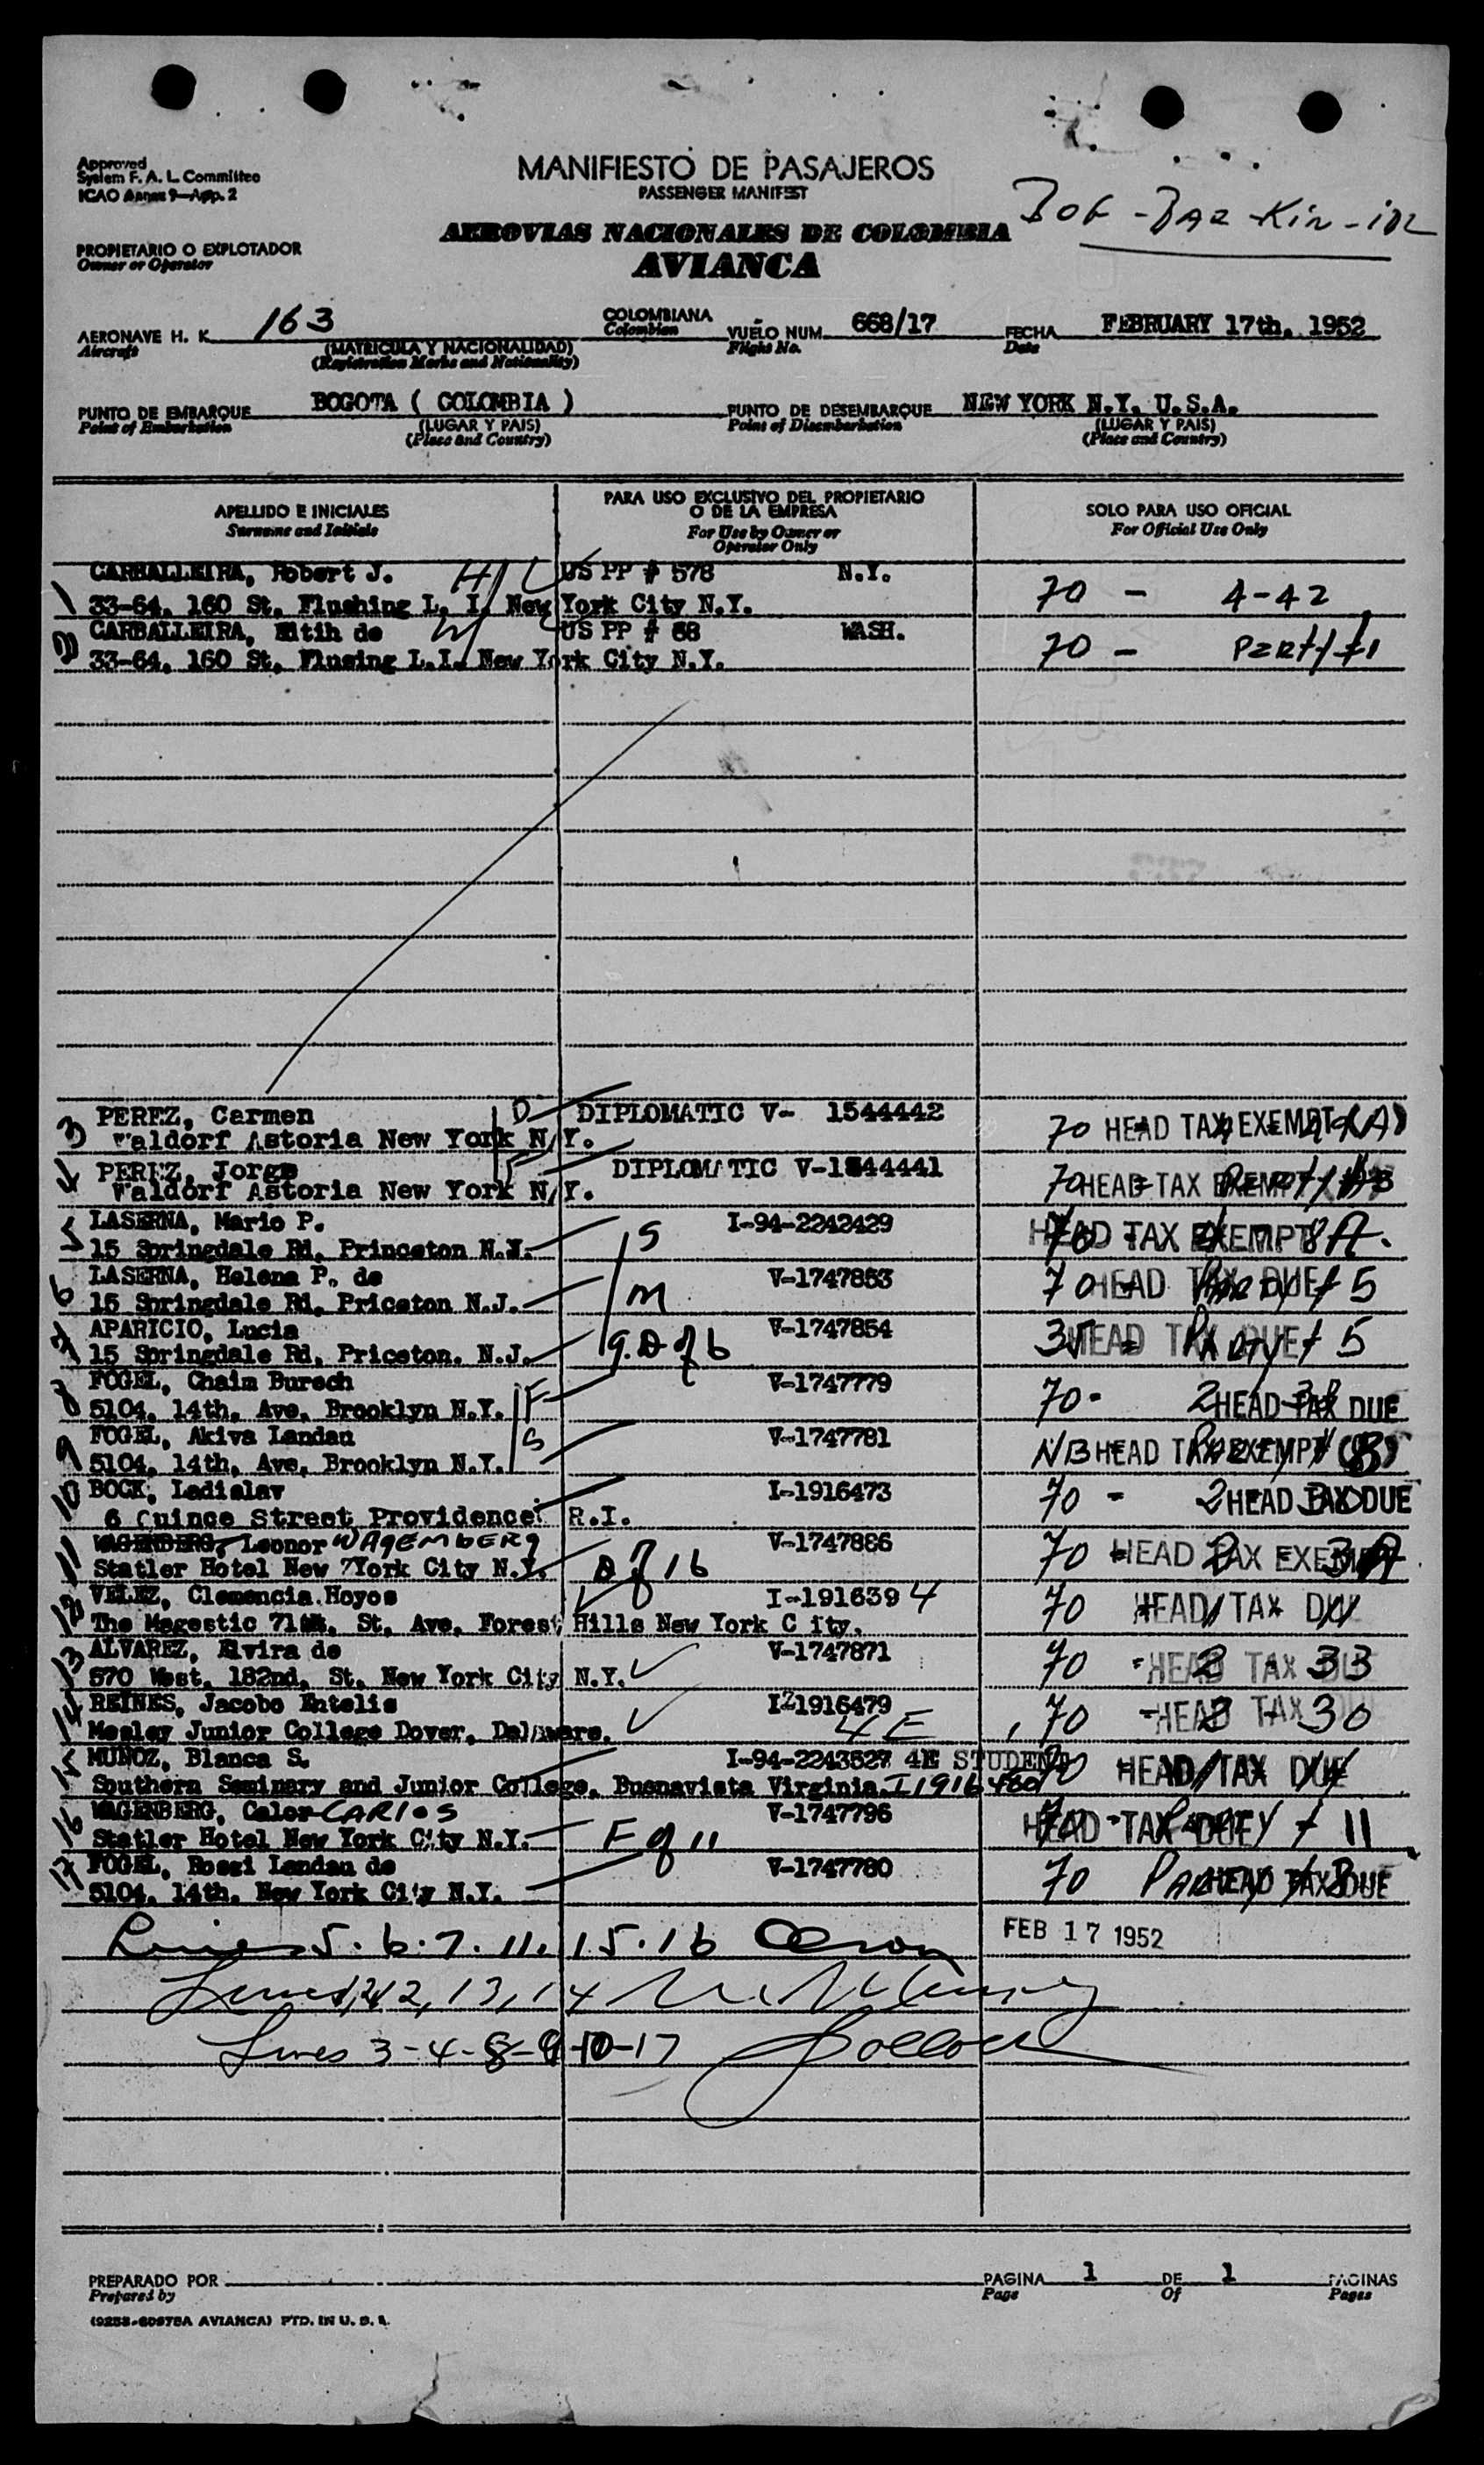 Approved
System F. A. L. Committee
ICAO Annex 9—App. 2
MANIFIESTO DE PASAJEROS
PASSENGER MANIFEST
PROPIETARIO O EXPLOTADOR
Owner or Operator
AEROVIAS NACIONALES DE COLOMBIA
AVIANCA
AERONAVE H. K. 163 COLOMBIANA VUELO NUM. 668/17 FECHA FEBRUARY 17th. 1952
Aircraft (MATRICULA Y NACIONALIDAD) Colombian Flight No. Date
(Registration Marks and Nationality)
PUNTO DE EMBARQUE BOGOTA ( COLOMBIA ) PUNTO DE DESEMBARQUE NEW YORK N.Y. U.S.A.
Point of Embarkation (LUGAR Y PAIS) Point of Disembarkation (LUGAR Y PAIS)
(Place and Country) (Place and Country)
APELLIDO E INICIALES PARA USO EXCLUSIVO DEL PROPIETARIO O DE LA EMPRESA SOLO PARA USO OFICIAL
Surname and Initials For Use by Owner or Operator Only For Official Use Only
CARBALLEIRA, Robert J. US PP # 578 N.Y.
1 33-64, 160 St. Flushing L. I. New York City N.Y. 70 - 4-42
CARBALLEIRA, de US PP # 68 WASH.
2 33-64, 160 St. Flusing L.I. New York City N.Y. 70 - Party #1
3 PEREZ, Carmen D DIPLOMATIC V- 1544442
Waldorf Astoria New York N.Y. 70 HEAD TAX EXEMPT
4 PEREZ, Jorge DIPLOMATIC V-1544441
Waldorf Astoria New York N.Y. 70 HEAD TAX EXEMPT
5 LASERNA, Mario P. S I-94-2242429
15 Springdale Rd. Princeton N.J. HEAD TAX EXEMPT
6 LASERNA, Helena P. de M V-1747853
15 Springdale Rd. Priceton N.J. 70 HEAD TAX DUE
7 APARICIO, Lucia V-1747854
15 Springdale Rd. Priceton. N.J. 35 HEAD TAX DUE
8 FOGEL, Chaim Burech F V-1747779
5104, 14th. Ave. Brooklyn N.Y. 70- HEAD TAX DUE
9 FOGEL, Akiva Landau S V-1747781
5104, 14th. Ave. Brooklyn N.Y. NB HEAD TAX EXEMPT (B)
10 BOCK, Ladislav I-1916473
6 Quince Street Providence R.I. 70 - HEAD TAX DUE
11 Leonor WAGEMBERG V-1747886
Statler Hotel New York City N.Y. D of 16 70 HEAD TAX EXEMPT
12 VELEZ, Clemencia Hoyos I-1916394
The Magestic St. Ave. Forest Hills New York City. 70 HEAD TAX
13 ALVAREZ, Elvira de V-1747871
570 West. 182nd. St. New York City N.Y. 70 HEAD TAX
14 REINES, Jacobo Entelis I-1916479
Mesley Junior College Dover, Delaware. 4E 70 HEAD TAX
15 MUÑOZ, Blanca S. I-94-2243527 4E STUDENT
Southern Seminary and Junior College. Buenavista Virginia I1916480 70 HEAD TAX DUE
16 WAGENBERG, Calos CARLOS V-1747796
Statler Hotel New York City N.Y. F of 11 HEAD TAX DUE
17 FOGEL, Rossi Landau de V-1747780
5104, 14th. New York City N.Y. 70 HEAD TAX DUE
5.6.7.11. 15.16
FEB 17 1952
Lines 12, 13, 14
Lines 3-4-8-9-10-17
PREPARADO POR PAGINA 1 DE 1 PAGINAS
Prepared by Page Of Pages
(9253-60675A AVIANCA) PTD. IN U. S. A.